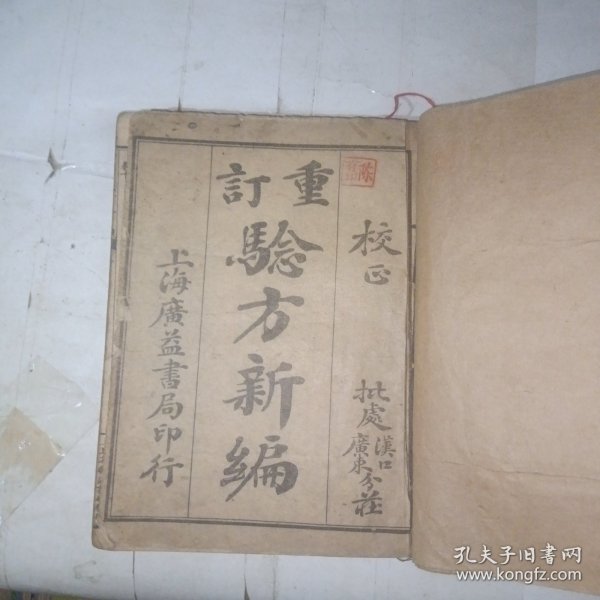 校正
批處漢口廣東分莊
重訂
驗方新編
上海廣益書局印行
陈
孔夫子旧书网
www.kongfz.com